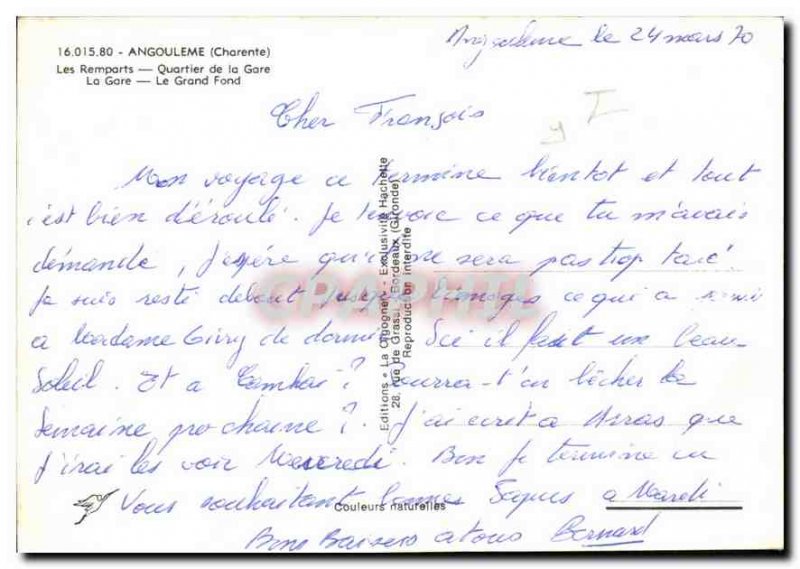 16.015.80 - ANGOULEME (Charente)
Les Remparts — Quartier de la Gare
La Gare — Le Grand Fond
Angoulême le 24 mars 70
Cher François
Mon voyage ce termine bientot et tout
c'est bien déroulé. Je t'envoie ce que tu m'avais
démandé, J'espére qu'il ne sera pas trop taré
Je suis resté debout jusque Limoges ce qui a
a Madame Givry de dormir. Ici il fait un beau
Soleil. Et a Cambai? pourra-t'on lêcher la
Semaine prochaine?. J'ai ecrit a Arras que
j'irai les voir Mercredi. Bon Je termine en
Vous souhaitant bonnes Paques a Mardi
Bons Baisers a tous Bernard
Editions « La Cigogne » - Exclusivité Hachette
28, rue de Grassi, Bordeaux (Gironde)
Reproduction interdite
Couleurs naturelles